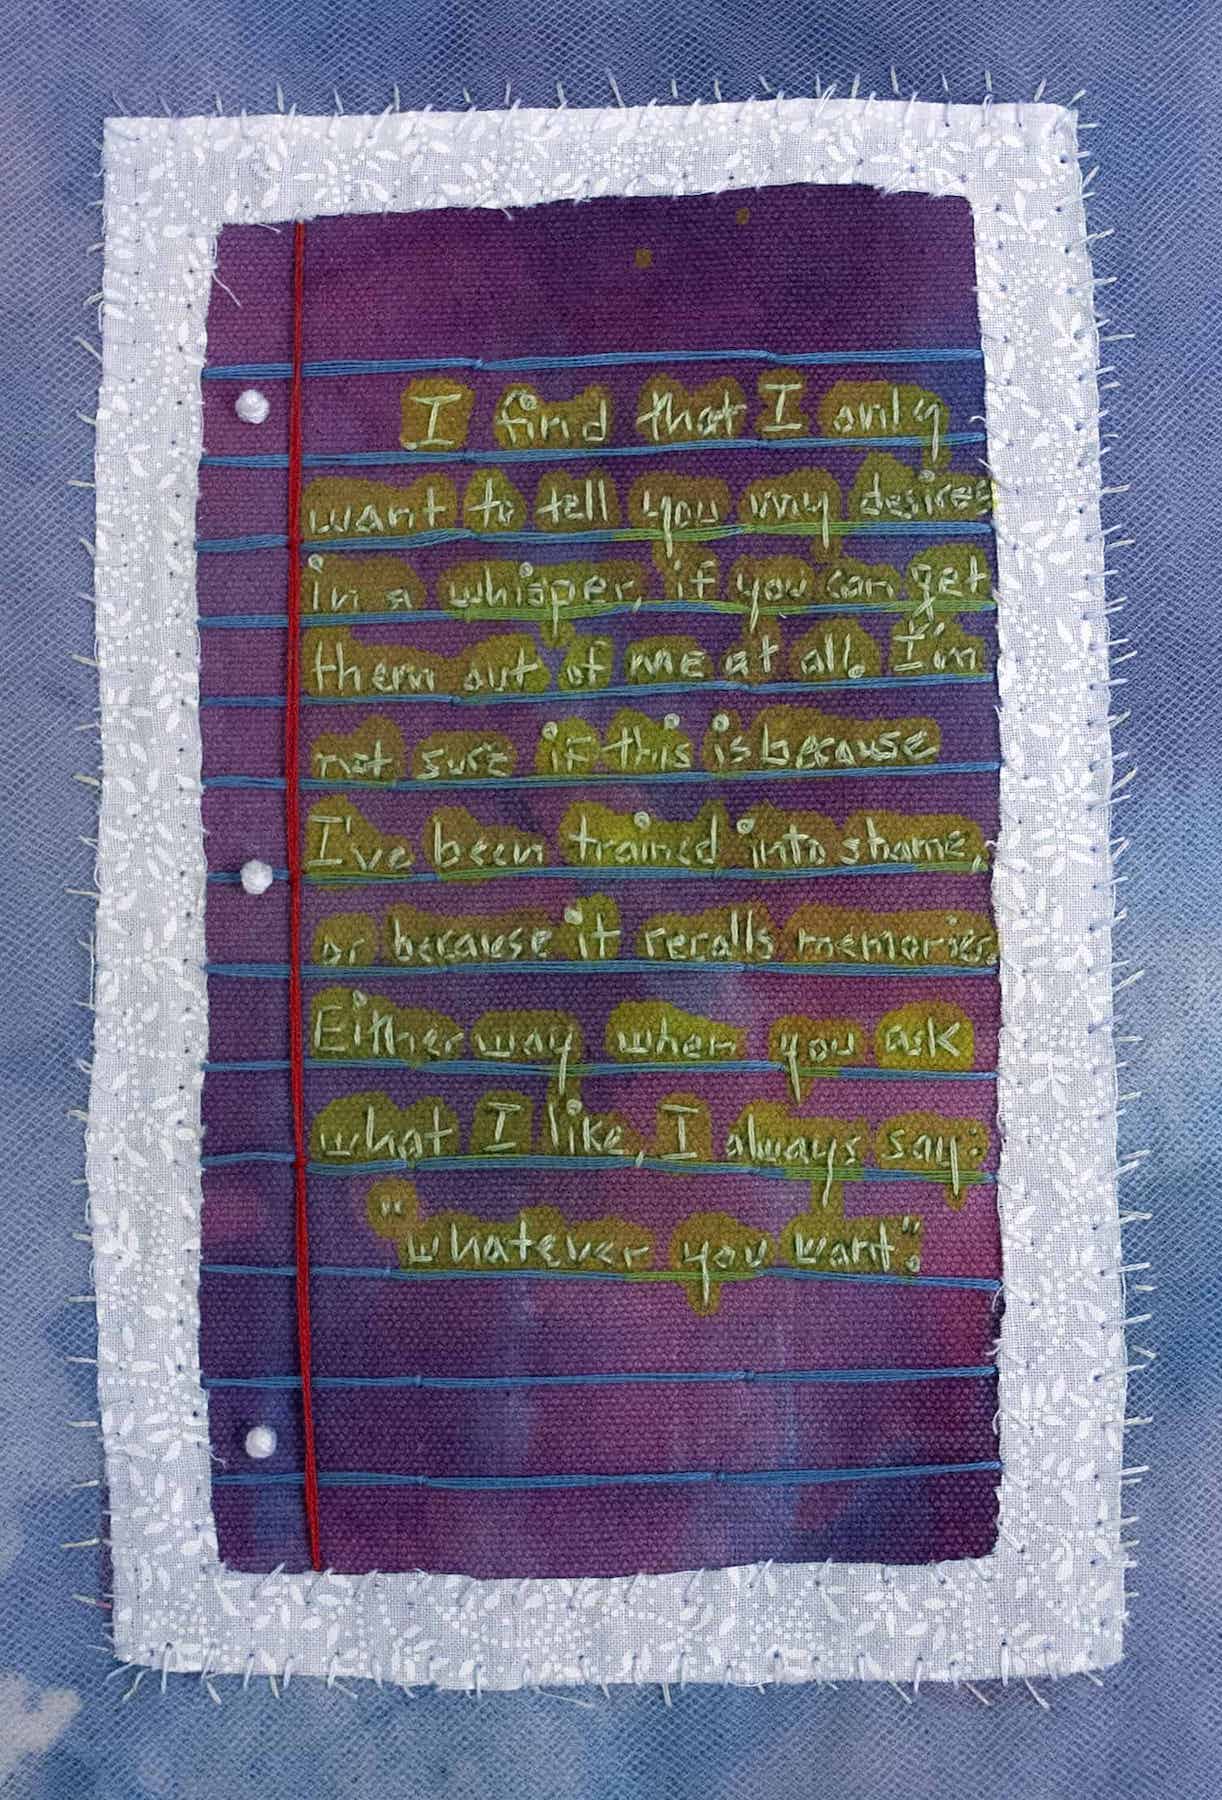 I find that I only
want to tell you my desires
in a whisper, if you can get
them out of me at all. I'm
not sure if this is because
I've been trained into shame,
or because it recalls memories.
Either way when you ask
what I like, I always say:
"whatever you want".